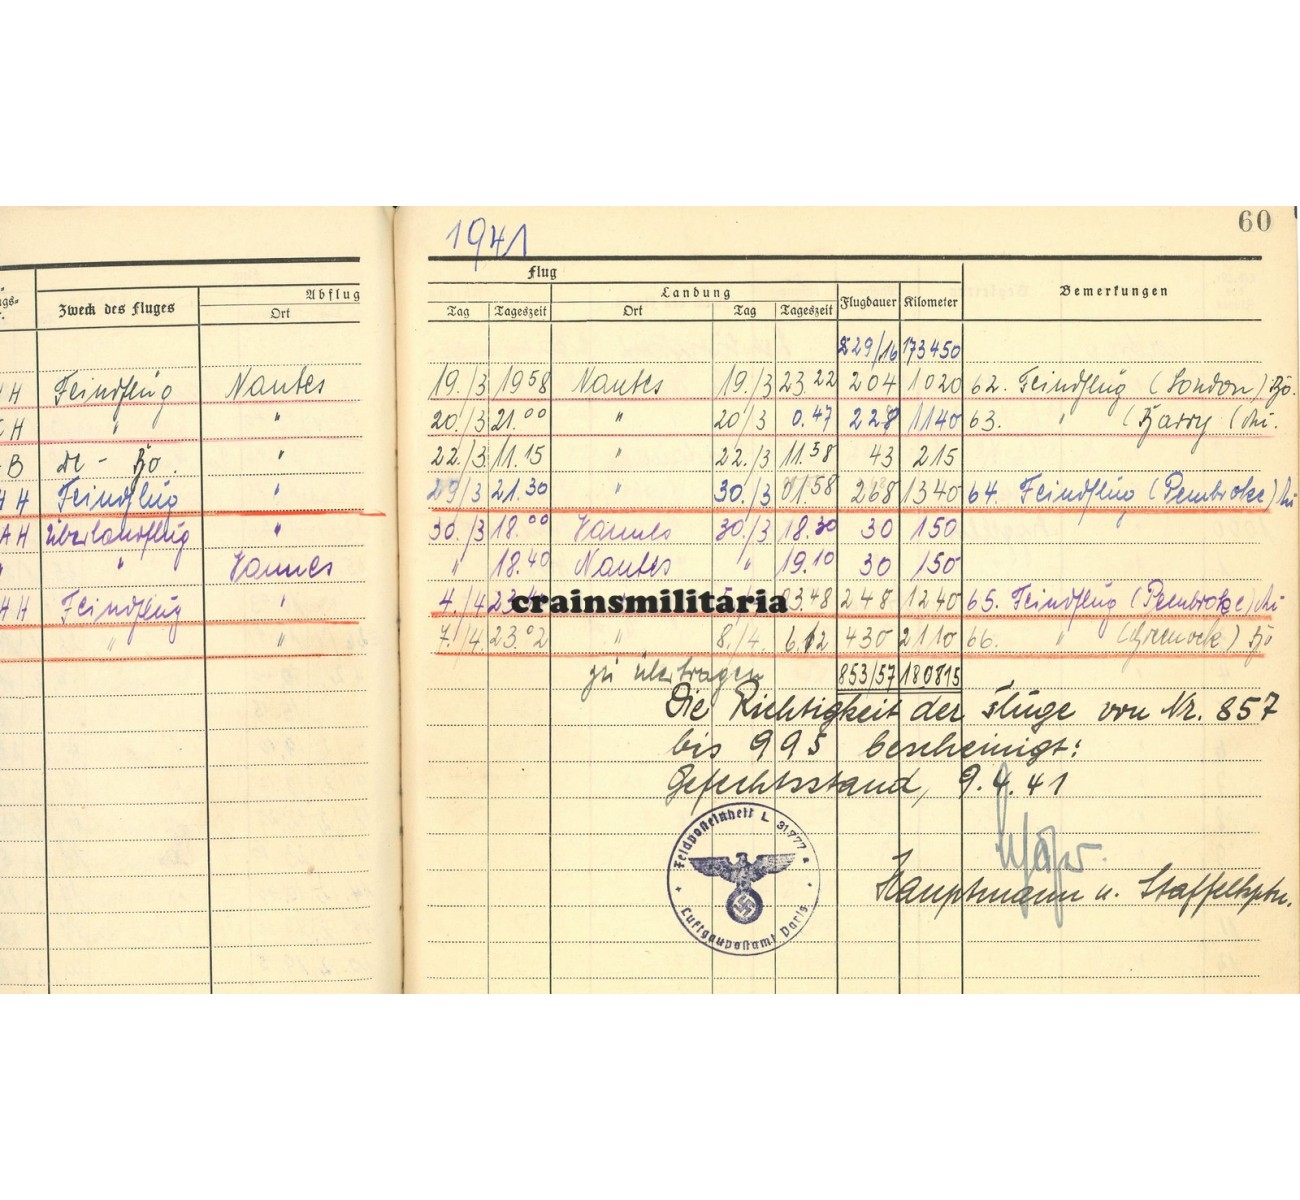 60
1941
Flug
Abflug
Landung
Zweck des Fluges
Ort
Tag Tageszeit Ort Tag Tageszeit Flugdauer Kilometer Bemerkungen
829/16 173450
H Feindflug Nantes 19./3 1958 Nantes 19./3 23 22 204 1020 62. Feindflug (London) Bo.
H " " 20./3 21.00 " 20/3 0.47 228 1140 63. " (Barry)
B " 22./3 11.15 " 22./3 11.58 43 215
H Feindflug " 29/3 21.30 " 30./3 01.58 268 1340 64. Feindflug (Pembroke)
AH Überlandflug " 30./3 18.00 Vannes 30./3 18.30 30 150
" " Vannes " 18.40 Nantes " 19.10 30 150
AH Feindflug " 4./4 03.48 248 1240 65. Feindflug (Pembroke)
" " 7./4. 23.02 " 8./4. 6.12 430 2110 66. " (Greenock) Bo
crainsmilitaria
zu übertragen 853/57 180815
Die Richtigkeit der Flüge von Nr. 857
bis 995 bescheinigt:
Gefechtsstand, 9.4.41
Feldposteinheit L 31777
Luftgaupostamt Paris
Hauptmann u. Staffelkptn.